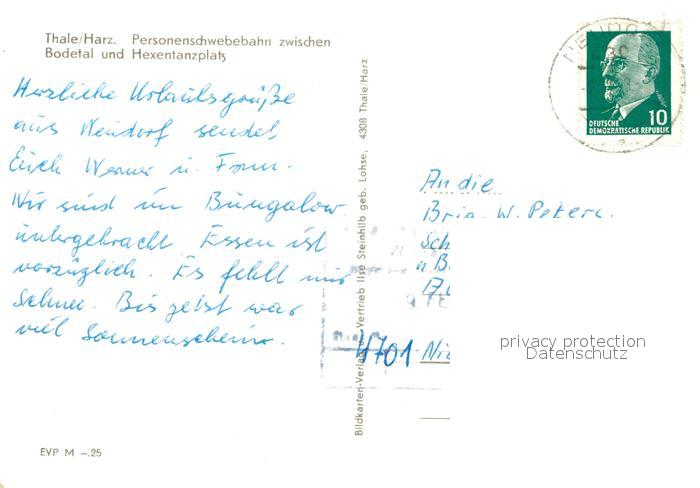 Thale/Harz. Personenschwebebahn zwischen
Bodetal und Hexentanzplatz
Herzliche Urlaubsgrüße
aus Neudorf sendet
Euch Werner u. Fam.
Wir sind im Bungalow
untergebracht Essen ist
vorzüglich. Es fehlt nur
Schnee. Bis jetzt war
viel Sonnenschein.
EVP M –.25
Bildkarten-Verlag u. Vertrieb Ilse Steinhilb geb. Lohse, 4308 Thale/Harz
NEUDO
10
DEUTSCHE
DEMOKRATISCHE REPUBLIK
An die
Brig. W. Peters.
Sch
4701
privacy protection
Datenschutz